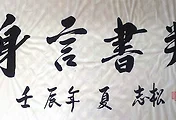 身言書判
壬辰年夏志松